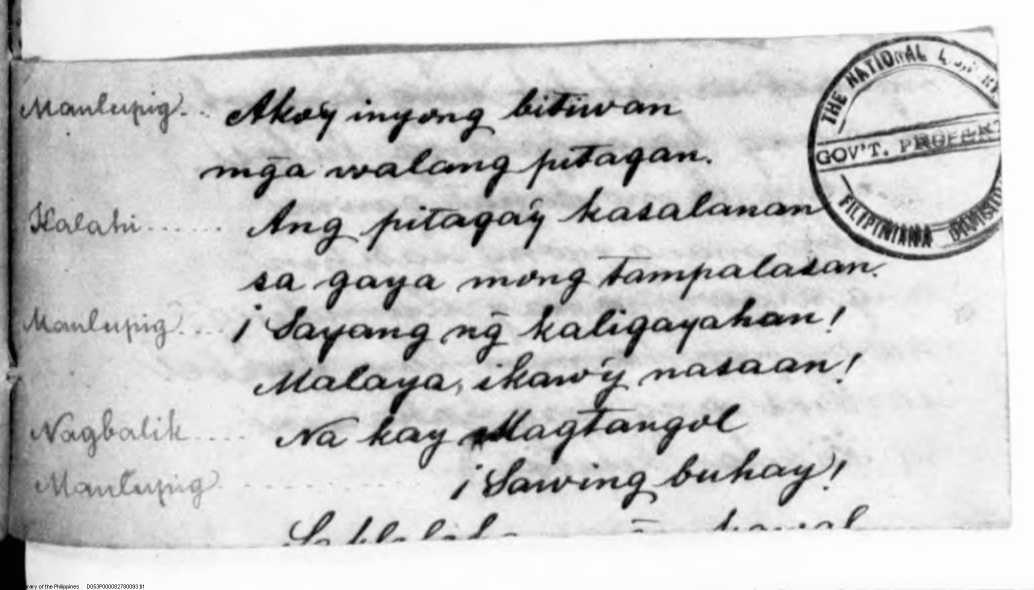 Manlupig... Akoy̔ inyong bitiwan
mg̃a walang pitagan.
Kalahi...... Ang pitaga'y kasalanan
sa gaya mong tampalasan.
Manlupig.... ¡Sayang ng̃ kaligayahan!
Malaya, ikaw'y nasaan!
Nagbalik.... Na kay Magtangol
Manlupig ............ ¡Sawing buhay!
THE NATIONAL LIBRARY
GOV'T. PROPERTY
FILIPINIANA DIVISION
rary of the Philippines